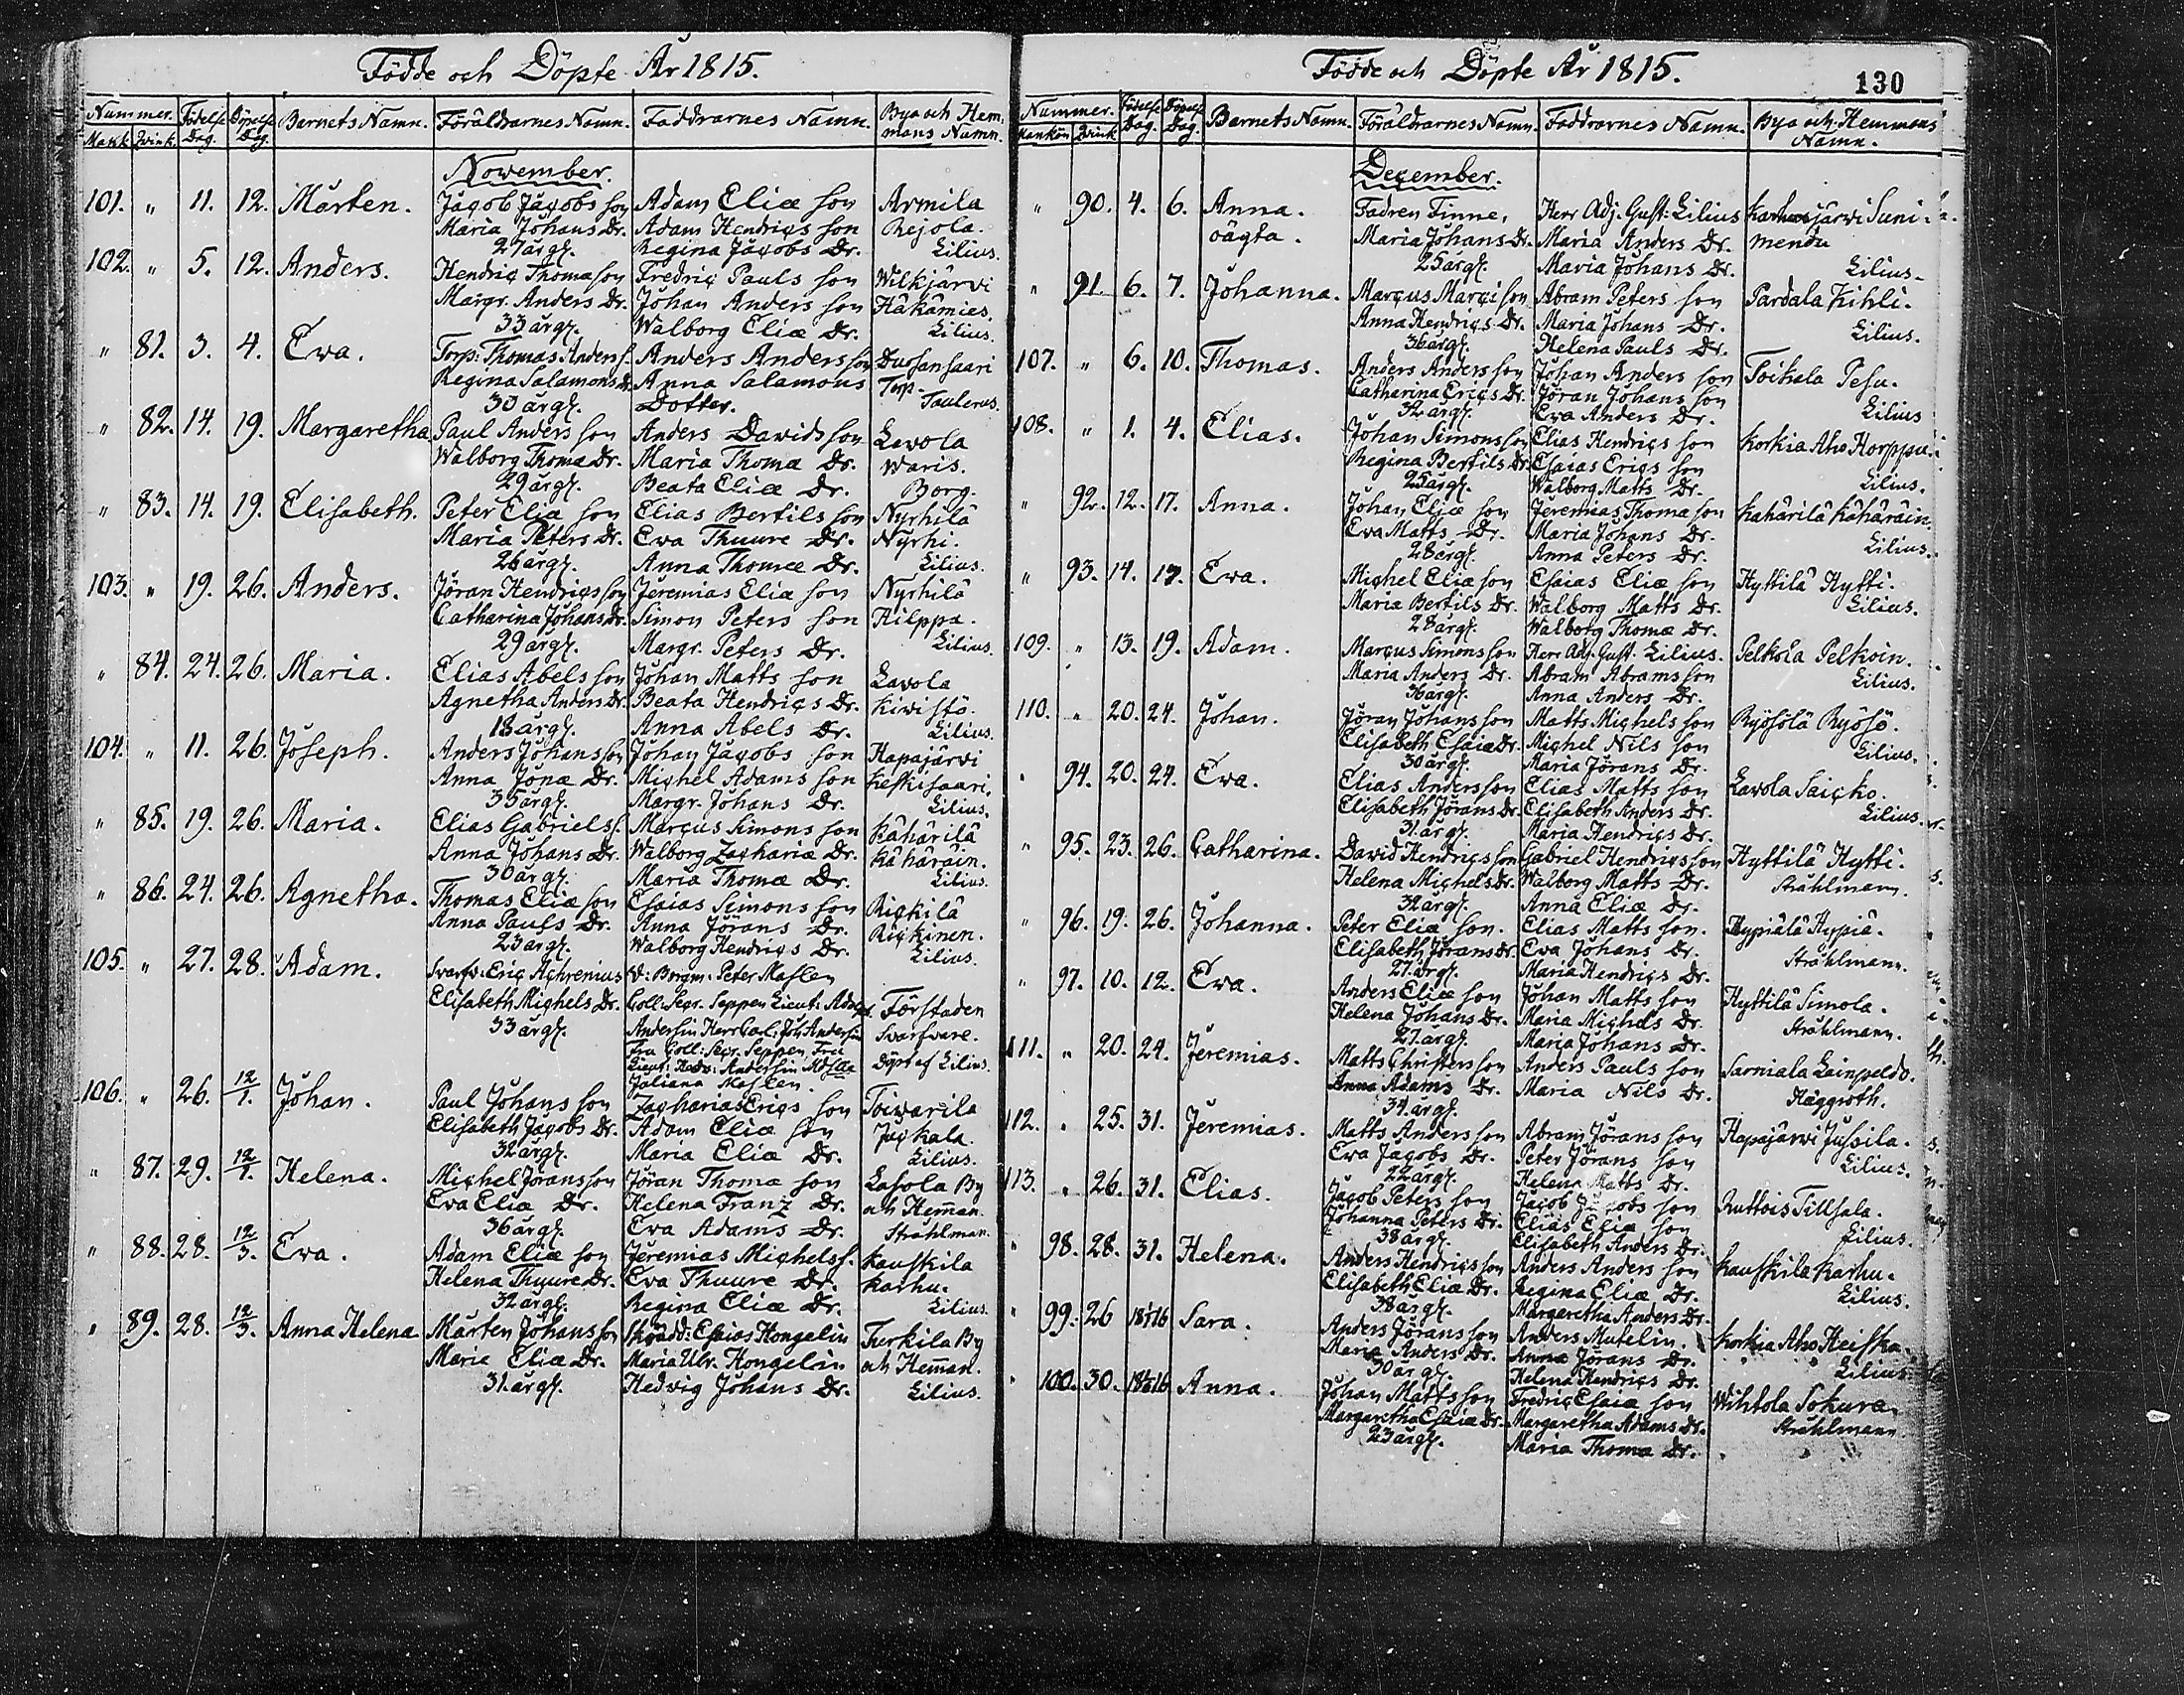 Födde och Döpte År 1815.
Nummer. Födelse Döpelse Barnets Namn. Föräldrarnes Namn. Faddrarnes Namn. By och Hem-
Mank. Qvink. Dag. Dag. mans Namn.
November.
101. " 11. 12. Mårten. Jacob Jacobs son Adam Eliæ son Armila
Maria Johans Dr. Adam Hendrics son Rejola.
27 årg. Regina Jacobs Dr. Lilius.
102. " 5. 12. Anders. Hendric Thomæ son Fredric Pauls son Wilkjärvi
Margr. Anders Dr. Johan Anders son Häkämies.
33 årg. Walborg Eliæ Dr. Lilius.
" 81. 3. 4. Ewa. Torp: Thomas Anders s. Anders Anders son Duosansaari
Regina Salamons Dr. Anna Salamons Torp.
30 årg. Dotter. Taulerus.
" 82. 14. 19. Margaretha Paul Anders son Anders Davids son Lavola
Walborg Thomæ Dr. Maria Thomæ Dr. Waris.
29 årg. Beata Eliæ Dr. Borg.
" 83. 14. 19. Elisabeth. Peter Eliæ son Elias Bertils son Nyrhilä
Maria Peters Dr. Eva Thuure Dr. Nyrhi.
26 årg. Anna Thomæ Dr. Lilius.
103. " 19. 26. Anders. Jöran Hendrics son Jeremias Eliæ son Nyrhilä
Catharina Johans Dr. Simon Peters son Hilppa.
29 årg. Margr. Peters Dr. Lilius.
" 84. 24. 26. Maria. Elias Abels son Johan Matts son Lavola
Agnetha Anders Dr. Beata Hendrics Dr. Kiwistö.
18 årg. Anna Abels Dr. Lilius.
104. " 11. 26. Joseph. Anders Johans son Johan Jacobs son Hapajärvi
Anna Jonæ Dr. Michel Adams son Keskisaari.
35 årg. Margr. Johans Dr. Lilius.
" 85. 19. 26. Maria. Elias Gabriels s. Marcus Simons son Kähärilä
Anna Johans Dr. Walborg Zachariæ Dr. Kähäräin.
30 årg. Maria Thomæ Dr. Lilius.
" 86. 24. 26. Agnetha. Thomas Eliæ son Esaias Simons son Rickilä
Anna Pauls Dr. Anna Jörans Dr. Rickinen.
23 årg. Walborg Hendrics Dr. Lilius.
105. " 27. 28. Adam. Svarfv: Eric Achrenius Peter Maslen
Elisabeth Michels Dr. Coll: Secr. Seppen Lieut: Adolph Förstaden
33 årg. Andersin Herr Carl Joh: Andersin Svarfvare.
Fru Coll: Secr. Seppen, Fru döpt af Lilius.
Lieut: Andersin
Juliana Maslen.
106. " 26. 12/1. Johan. Paul Johans son Zacharias Erics son Toiwarila
Elisabeth Jacobs Dr. Adam Eliæ son Jackala.
32 årg. Maria Eliæ Dr. Lilius.
" 87. 29. 12/1. Helena. Michel Jörans son Jöran Thomæ son Lasola By
Eva Eliæ Dr. Helena Franz Dr. och Hem̄an.
36 årg. Eva Adams Dr. Stråhlman.
" 88. 28. 12/3. Ewa. Adam Eliæ son Jeremias Michels s. Kauskila
Helena Thuure Dr. Eva Thuure Dr. Karhu.
32 årg. Regina Eliæ Dr. Lilius.
" 89. 28. 12/3. Anna Helena. Mårten Johans son Skrädd: Esaias Hongelin Turkila By
Maria Eliæ Dr. Maria Ulr. Hongelin och Hem̄an.
31. årg. Hedvig Johans Dr. Lilius.
Födde och Döpte År 1815.
130
Nummer. Födelse Döpels Barnets Namn. Föräldrarnes Namn. Faddrarnes Namn. By och Hemmans
Mankön Qvink Dag. Dag. Namn.
December.
" 90. 4. 6. Anna. Fadren Finne, Herr Adj. Gust: Lilius Suni-
oägta. Maria Johans Dr. Maria Anders Dr. mendu
25 årg. Maria Johans Dr. Lilius.
" 91. 6. 7. Johanna. Marcus Marci son Abram Peters son Pardala Kihli.
Anna Hendrics Dr. Maria Johans Dr.
36 årg. Helena Pauls Dr. Lilius.
107. " 6. 10. Thomas. Anders Anders son Johan Anders son Toikala Pesu.
Catharina Erics Dr. Jöran Johans son
32 årg. Eva Anders Dr. Lilius
108. " 1. 4. Elias. Johan Simons son Elias Hendrics son Korkia Aho Horppu.
Regina Bertils Dr. Esaias Erics son
25 årg. Walborg Matts Dr. Lilius.
" 92. 12. 17. Anna. Johan Eliæ son Jeremias Thomæ son Kähärilä Kähäräin.
Eva Matts Dr. Maria Johans Dr.
28 årg. Anna Peters Dr. Lilius.
" 93. 14. 17. Ewa. Michel Eliæ son Esaias Eliæ son Hyttilä Hytti.
Maria Bertils Dr. Walborg Matts Dr. Lilius.
28 årg. Walborg Thomæ Dr.
109. " 13. 19. Adam. Marcus Simons son Herr Adj. Gust. Lilius. Pelkola Pelkoin.
Maria Anders Dr. Abram Abrams son
36 årg. Anna Anders Dr. Lilius.
110. " 20. 24. Johan. Jöran Johans son Matts Michels son Ryösölä Ryösö.
Elisabeth Esaiæ Dr. Michel Nils son
30 årg. Maria Jörans Dr. Lilius.
" 94. 20. 24. Eva. Elias Anders son Elias Matts son Lavola Saicko.
Elisabeth Jörans Dr. Elisabeth Anders Dr.
31. årg. Maria Hendrics Dr. Lilius.
" 95. 23. 26. Catharina. David Hendrics son Gabriel Hendrics son Hyttilä Hytti.
Helena Michels Dr. Walborg Matts Dr. Stråhlmann.
Anna Eliæ Dr.
" 96. 19. 26. Johanna. Peter Eliæ son. Elias Matts son. Hypiälä Hypiä.
Elisabeth Jörans Dr. Eva Johans Dr. Stråhlmann.
27. årg. Maria Hendrics Dr.
" 97. 10. 12. Ewa. Anders Eliæ son Johan Matts son Hyttilä Simola.
Helena Johans Dr. Maria Michels Dr. Stråhlmann.
27. årg. Maria Johans Dr.
111. " 20. 24. Jeremias. Matts Christers son Anders Pauls son Sarniala Lainpeldo.
Anna Adams Dr. Maria Nils Dr. Häggroth.
34. årg.
112. " 25. 31. Jeremias. Matts Anders son Abram Jörans son Hapajärwi Jussila.
Eva Jacobs Dr. Peter Jörans son Lilius.
22 årg. Helena Matts Dr.
113. " 26. 31. Elias. Jacob Peters son Jacob Jacobs son Ruttois Tillsala.
Johanna Peters Dr. Elias Eliæ son
38 årg. Elisabeth Anders Dr. Lilius.
" 98. 28. 31. Helena. Anders Hendrics son Anders Anders son Kauskila Karhu.
Elisabeth Eliæ Dr. Regina Eliæ Dr.
38 årg. Margaretha Anders Dr. Lilius.
" 99. 26 Sara. Anders Jörans son Anders Mutelin. Korkia Aho Heiska.
Maria Anders Dr. Anna Jörans Dr.
30 årg. Helena Hendrics Dr. Lilius
" 100. 30. Anna. Johan Matts son Fredric Esaiæ son Wihtola Sokura.
Margaretha Esaiæ Dr. Margaretha Adams Dr. Stråhlmann
23 årg. Maria Thomæ Dr.